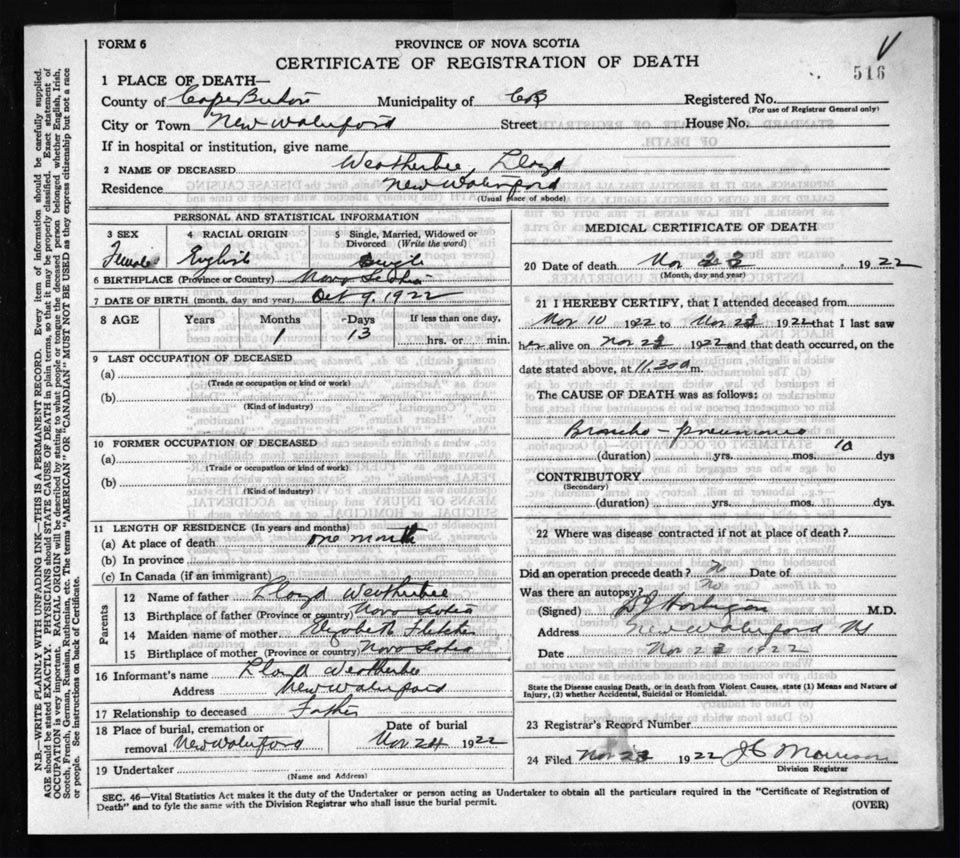 FORM 6
PROVINCE OF NOVA SCOTIA
CERTIFICATE OF REGISTRATION OF DEATH
516
1 PLACE OF DEATH—
County of Cape Breton Municipality of CB Registered No.
(For use of Registrar General only)
City or Town New Waterford Street House No.
If in hospital or institution, give name
2 NAME OF DECEASED Weatherbee, Lloyd
Residence New Waterford
(Usual place of abode)
PERSONAL AND STATISTICAL INFORMATION
3 SEX 4 RACIAL ORIGIN 5 Single, Married, Widowed or Divorced (Write the word)
Female English Single
6 BIRTHPLACE (Province or Country) Nova Scotia
7 DATE OF BIRTH (month, day and year) Oct 9, 1922
8 AGE Years Months Days If less than one day,
1 13 hrs. or min.
9 LAST OCCUPATION OF DECEASED
(a)
(Trade or occupation or kind or work)
(b)
(Kind of industry)
10 FORMER OCCUPATION OF DECEASED
(a)
(Trade or occupation or kind or work)
(b)
(Kind of industry)
11 LENGTH OF RESIDENCE (In years and months)
(a) At place of death one month
(b) In province
(c) In Canada (if an immigrant)
Parents
12 Name of father Lloyd Weatherbee
13 Birthplace of father (Province or country) Nova Scotia
14 Maiden name of mother Elizabeth Fletcher
15 Birthplace of mother (Province or country) Nova Scotia
16 Informant's name Lloyd Weatherbee
Address New Waterford
17 Relationship to deceased Father
18 Place of burial, cremation or Date of burial
removal New Waterford Nov 24 1922
19 Undertaker
(Name and Address)
MEDICAL CERTIFICATE OF DEATH
20 Date of death Nov 22, 1922
(Month, day and year)
21 I HEREBY CERTIFY, that I attended deceased from
Nov 10 1922 to Nov 1922 that I last saw
her alive on Nov 1922 and that death occurred, on the
date stated above, at 11.30 a m.
The CAUSE OF DEATH was as follows:
Broncho-pneumonia
(duration) yrs. mos. 10 dys
CONTRIBUTORY
(Secondary)
(duration) yrs. mos. dys.
22 Where was disease contracted if not at place of death?
Did an operation precede death? No Date of
Was there an autopsy? No
(Signed) M.D.
Address New Waterford NS
Date Nov 1922
State the Disease causing Death, or in death from Violent Causes, state (1) Means and Nature of
Injury, (2) whether Accidental, Suicidal or Homicidal.
23 Registrar's Record Number
24 Filed Nov 1922 J C Morrison
Division Registrar
SEC. 46—Vital Statistics Act makes it the duty of the Undertaker or person acting as Undertaker to obtain all the particulars required in the "Certificate of Registration of
Death" and to fyle the same with the Division Registrar who shall issue the burial permit. (OVER)
N.B.—WRITE PLAINLY WITH UNFADING INK—THIS IS A PERMANENT RECORD. Every item of information should be carefully supplied.
AGE should be stated EXACTLY. PHYSICIANS should STATE CAUSE OF DEATH in plain terms, so that it may be properly classified. Exact statement of
OCCUPATION is very important. RACIAL ORIGIN will be described by stating to what people or tongue the deceased person belonged, whether English, Irish,
Scotch, French, German, Russian, Ruthenian, etc. The terms "AMERICAN" OR "CANADIAN" MUST NOT BE USED as they express citizenship but not a race
or people. See instructions on back of Certificate.